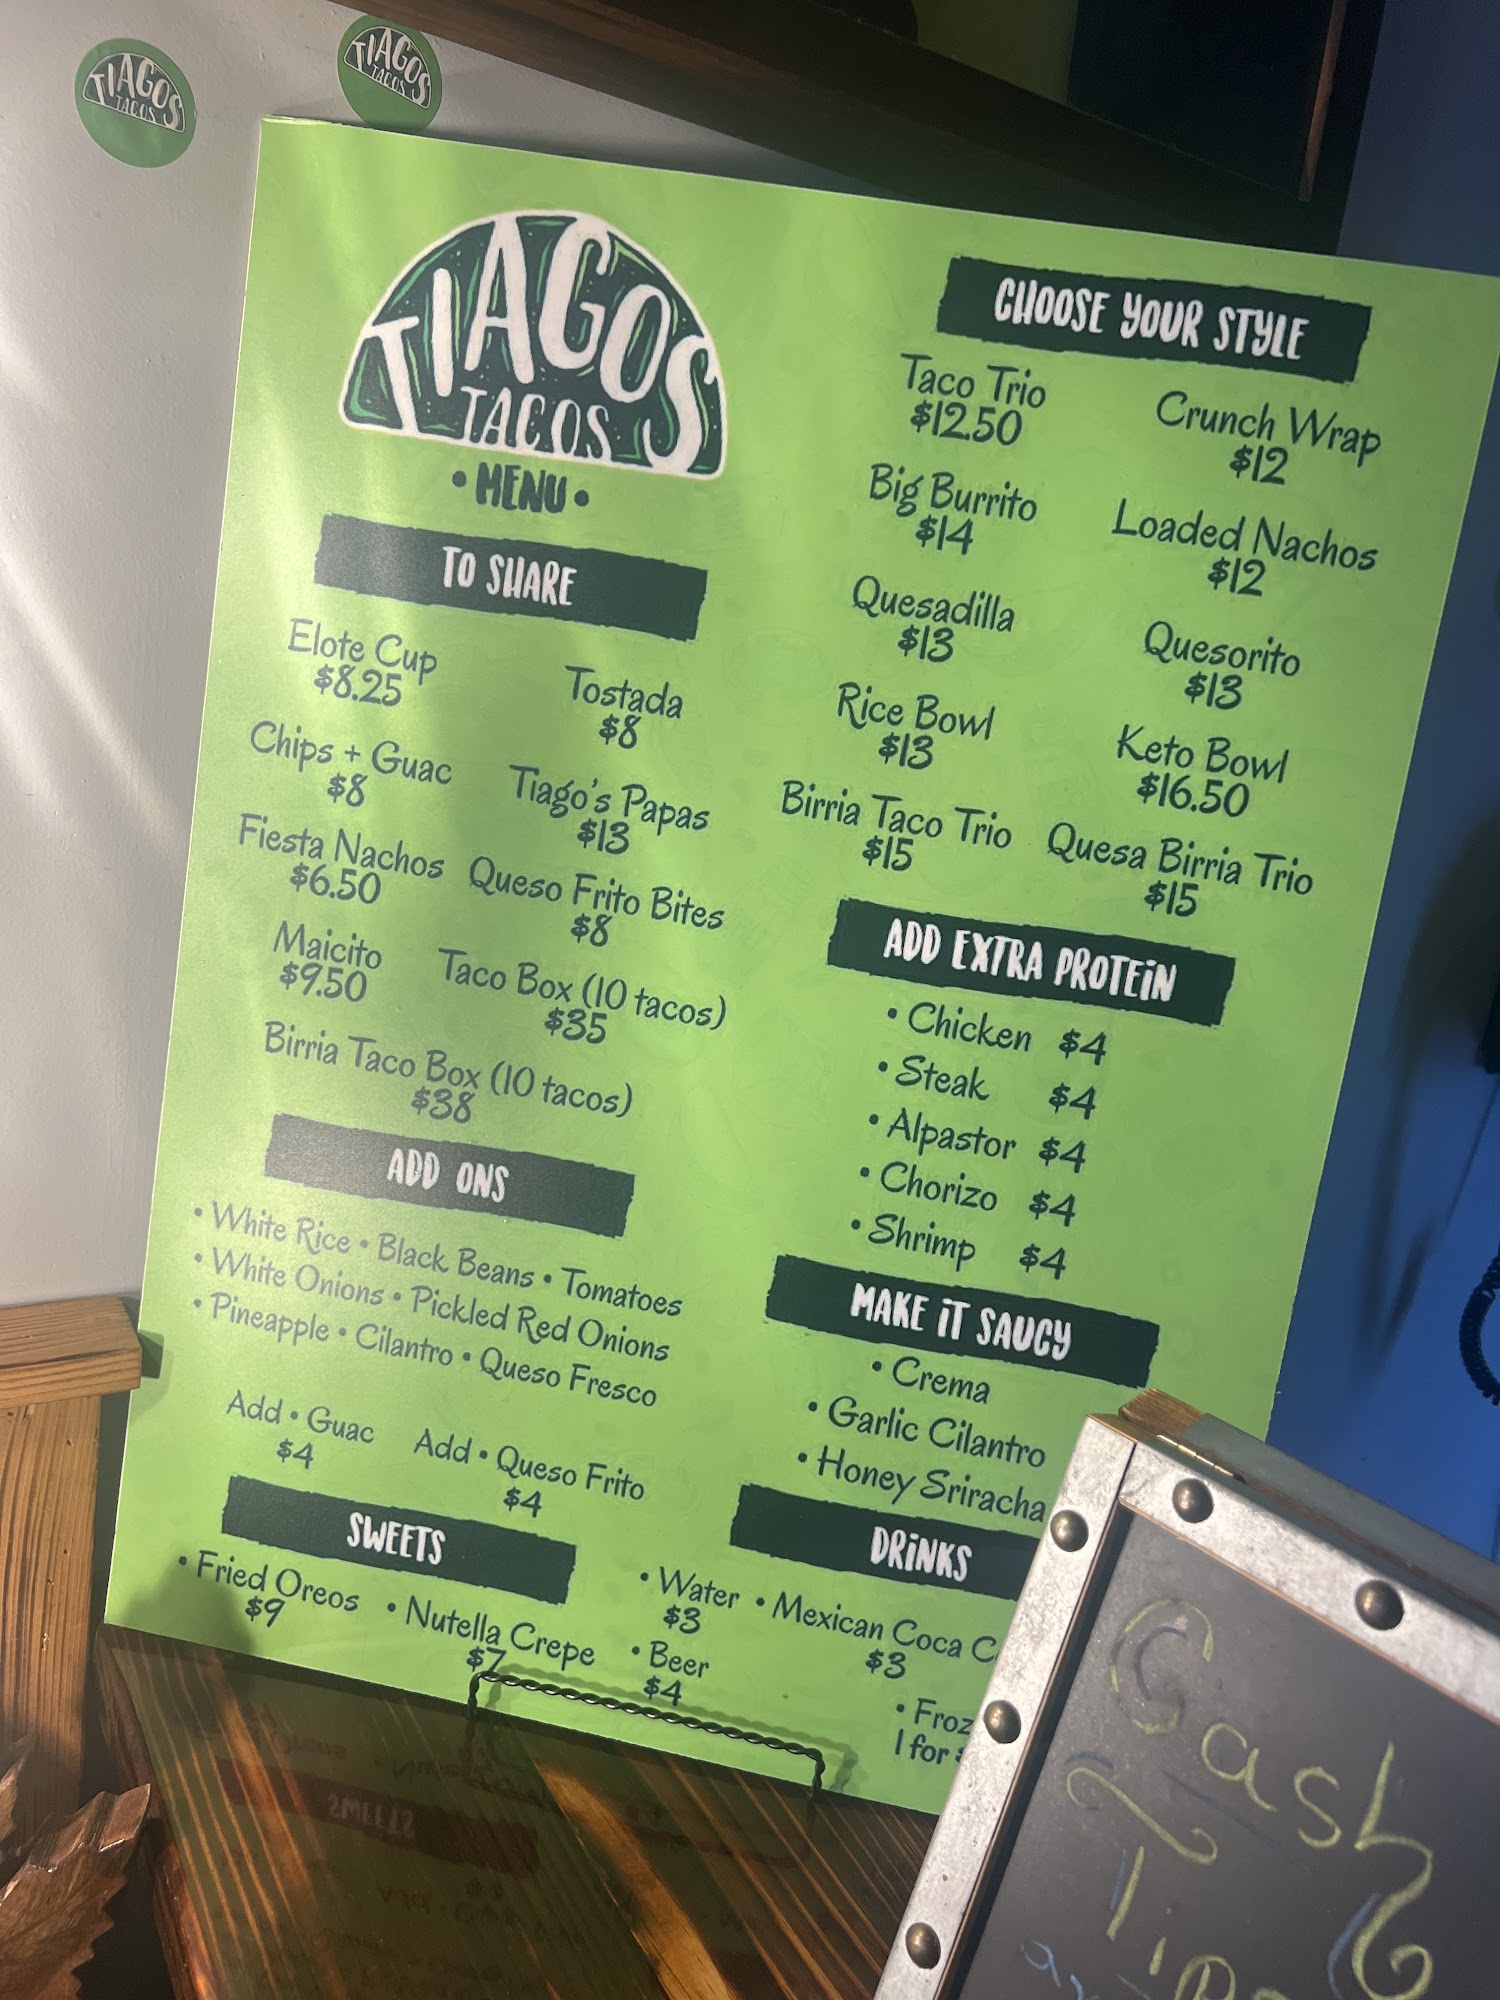 TIAGOS
TACOS
TIAGOS
TACOS
TIAGOS
TACOS
• MENU •
TO SHARE
Elote Cup
$8.25
Tostada
$8
Chips + Guac
$8
Tiago's Papas
$13
Fiesta Nachos
$6.50
Queso Frito Bites
$8
Maicito
$9.50
Taco Box (10 tacos)
$35
Birria Taco Box (10 tacos)
$38
ADD ONS
• White Rice • Black Beans • Tomatoes
• White Onions • Pickled Red Onions
• Pineapple • Cilantro • Queso Fresco
Add • Guac
$4
Add • Queso Frito
$4
SWEETS
• Fried Oreos
$9
• Nutella Crepe
$7
CHOOSE YOUR STYLE
Taco Trio
$12.50
Crunch Wrap
$12
Big Burrito
$14
Loaded Nachos
$12
Quesadilla
$13
Quesorito
$13
Rice Bowl
$13
Keto Bowl
$16.50
Birria Taco Trio
$15
Quesa Birria Trio
$15
ADD EXTRA PROTEIN
• Chicken $4
• Steak $4
• Alpastor $4
• Chorizo $4
• Shrimp $4
MAKE IT SAUCY
• Crema
• Garlic Cilantro
• Honey Sriracha
DRINKS
• Water
$3
• Mexican Coca C
$3
• Beer
$4
• Froz
1 for
Cash